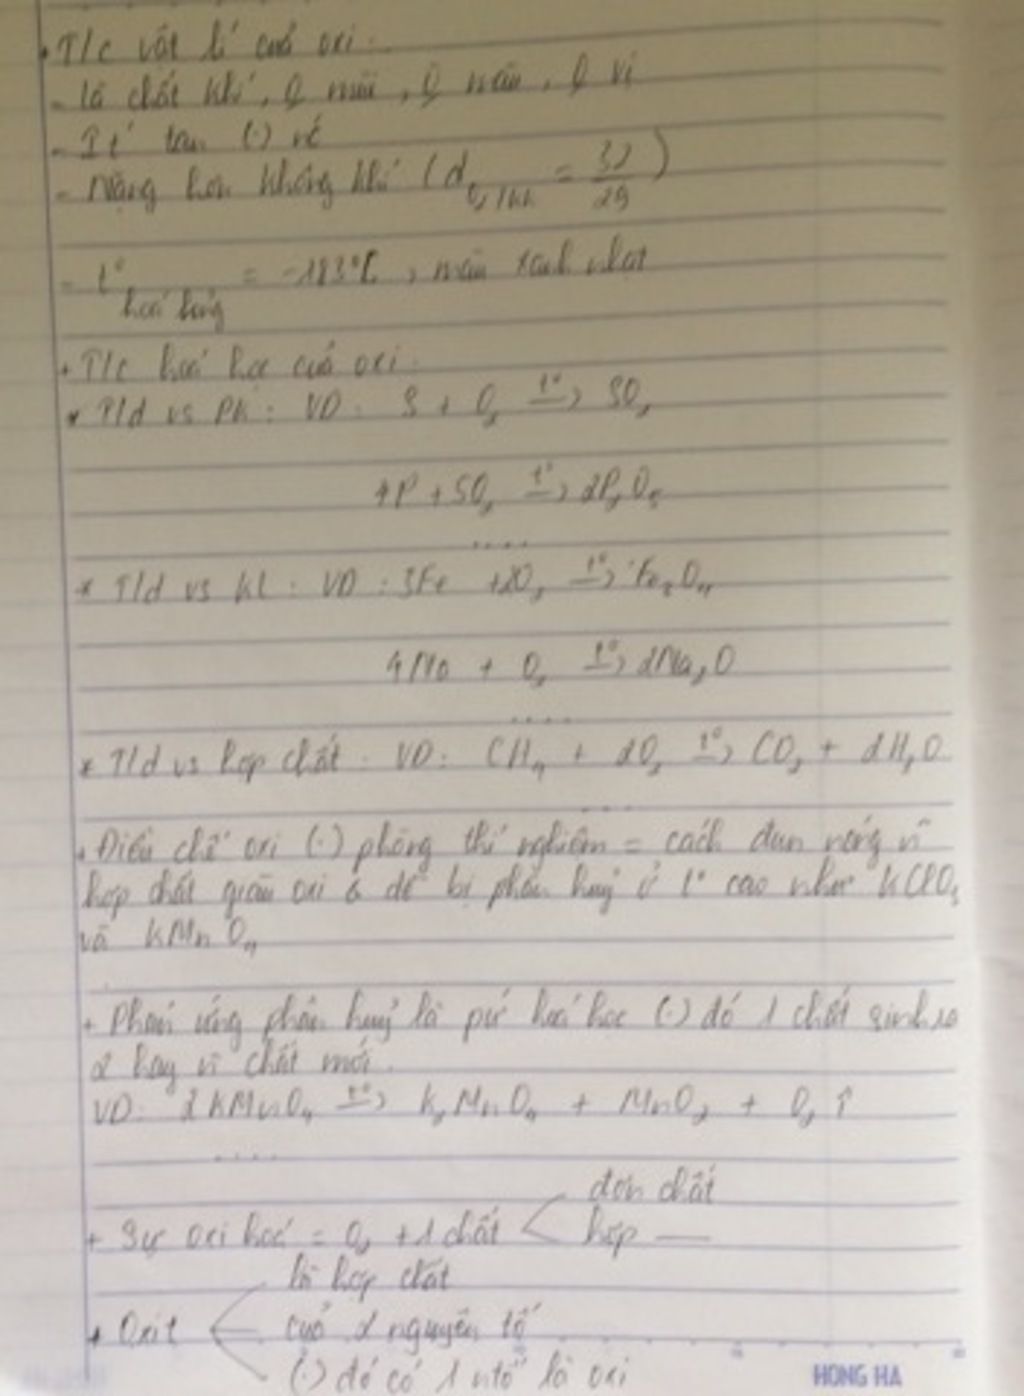 + T/c vật lí của oxi:
- là chất khí, Q mùi, Q màu, Q vị
- Ít tan (.) nc
- Nặng hơn không khí (d O₂/kk = 32/29)
- t° hoá lỏng = -183°C, màu xanh nhạt
+ T/c hoá học của oxi:
* T/d vs PK: VD: S + O₂ t°→ SO₂
4P + 5O₂ t°→ 2P₂O₅
....
* T/d vs KL: VD: 3Fe + 2O₂ t°→ Fe₃O₄
4Na + O₂ t°→ 2Na₂O
....
* T/d vs hợp chất: VD: CH₄ + 2O₂ t°→ CO₂ + 2H₂O
...
+ Điều chế oxi (.) phòng thí nghiệm = cách đun nóng n~
hợp chất giàu oxi & dễ bị phân huỷ ở t° cao như KClO₃
và KMnO₄
+ Phản ứng phân huỷ là pứ hoá học (.) đó 1 chất sinh ra
2 hay n~ chất mới.
VD: 2KMnO₄ t°→ K₂MnO₄ + MnO₂ + O₂ ↑
....
đơn chất
+ Sự oxi hoá = O₂ + 1 chất < hợp —
là hợp chất
+ Oxit < của 2 nguyên tố
(.) đó có 1 ntố là oxi
HONG HA